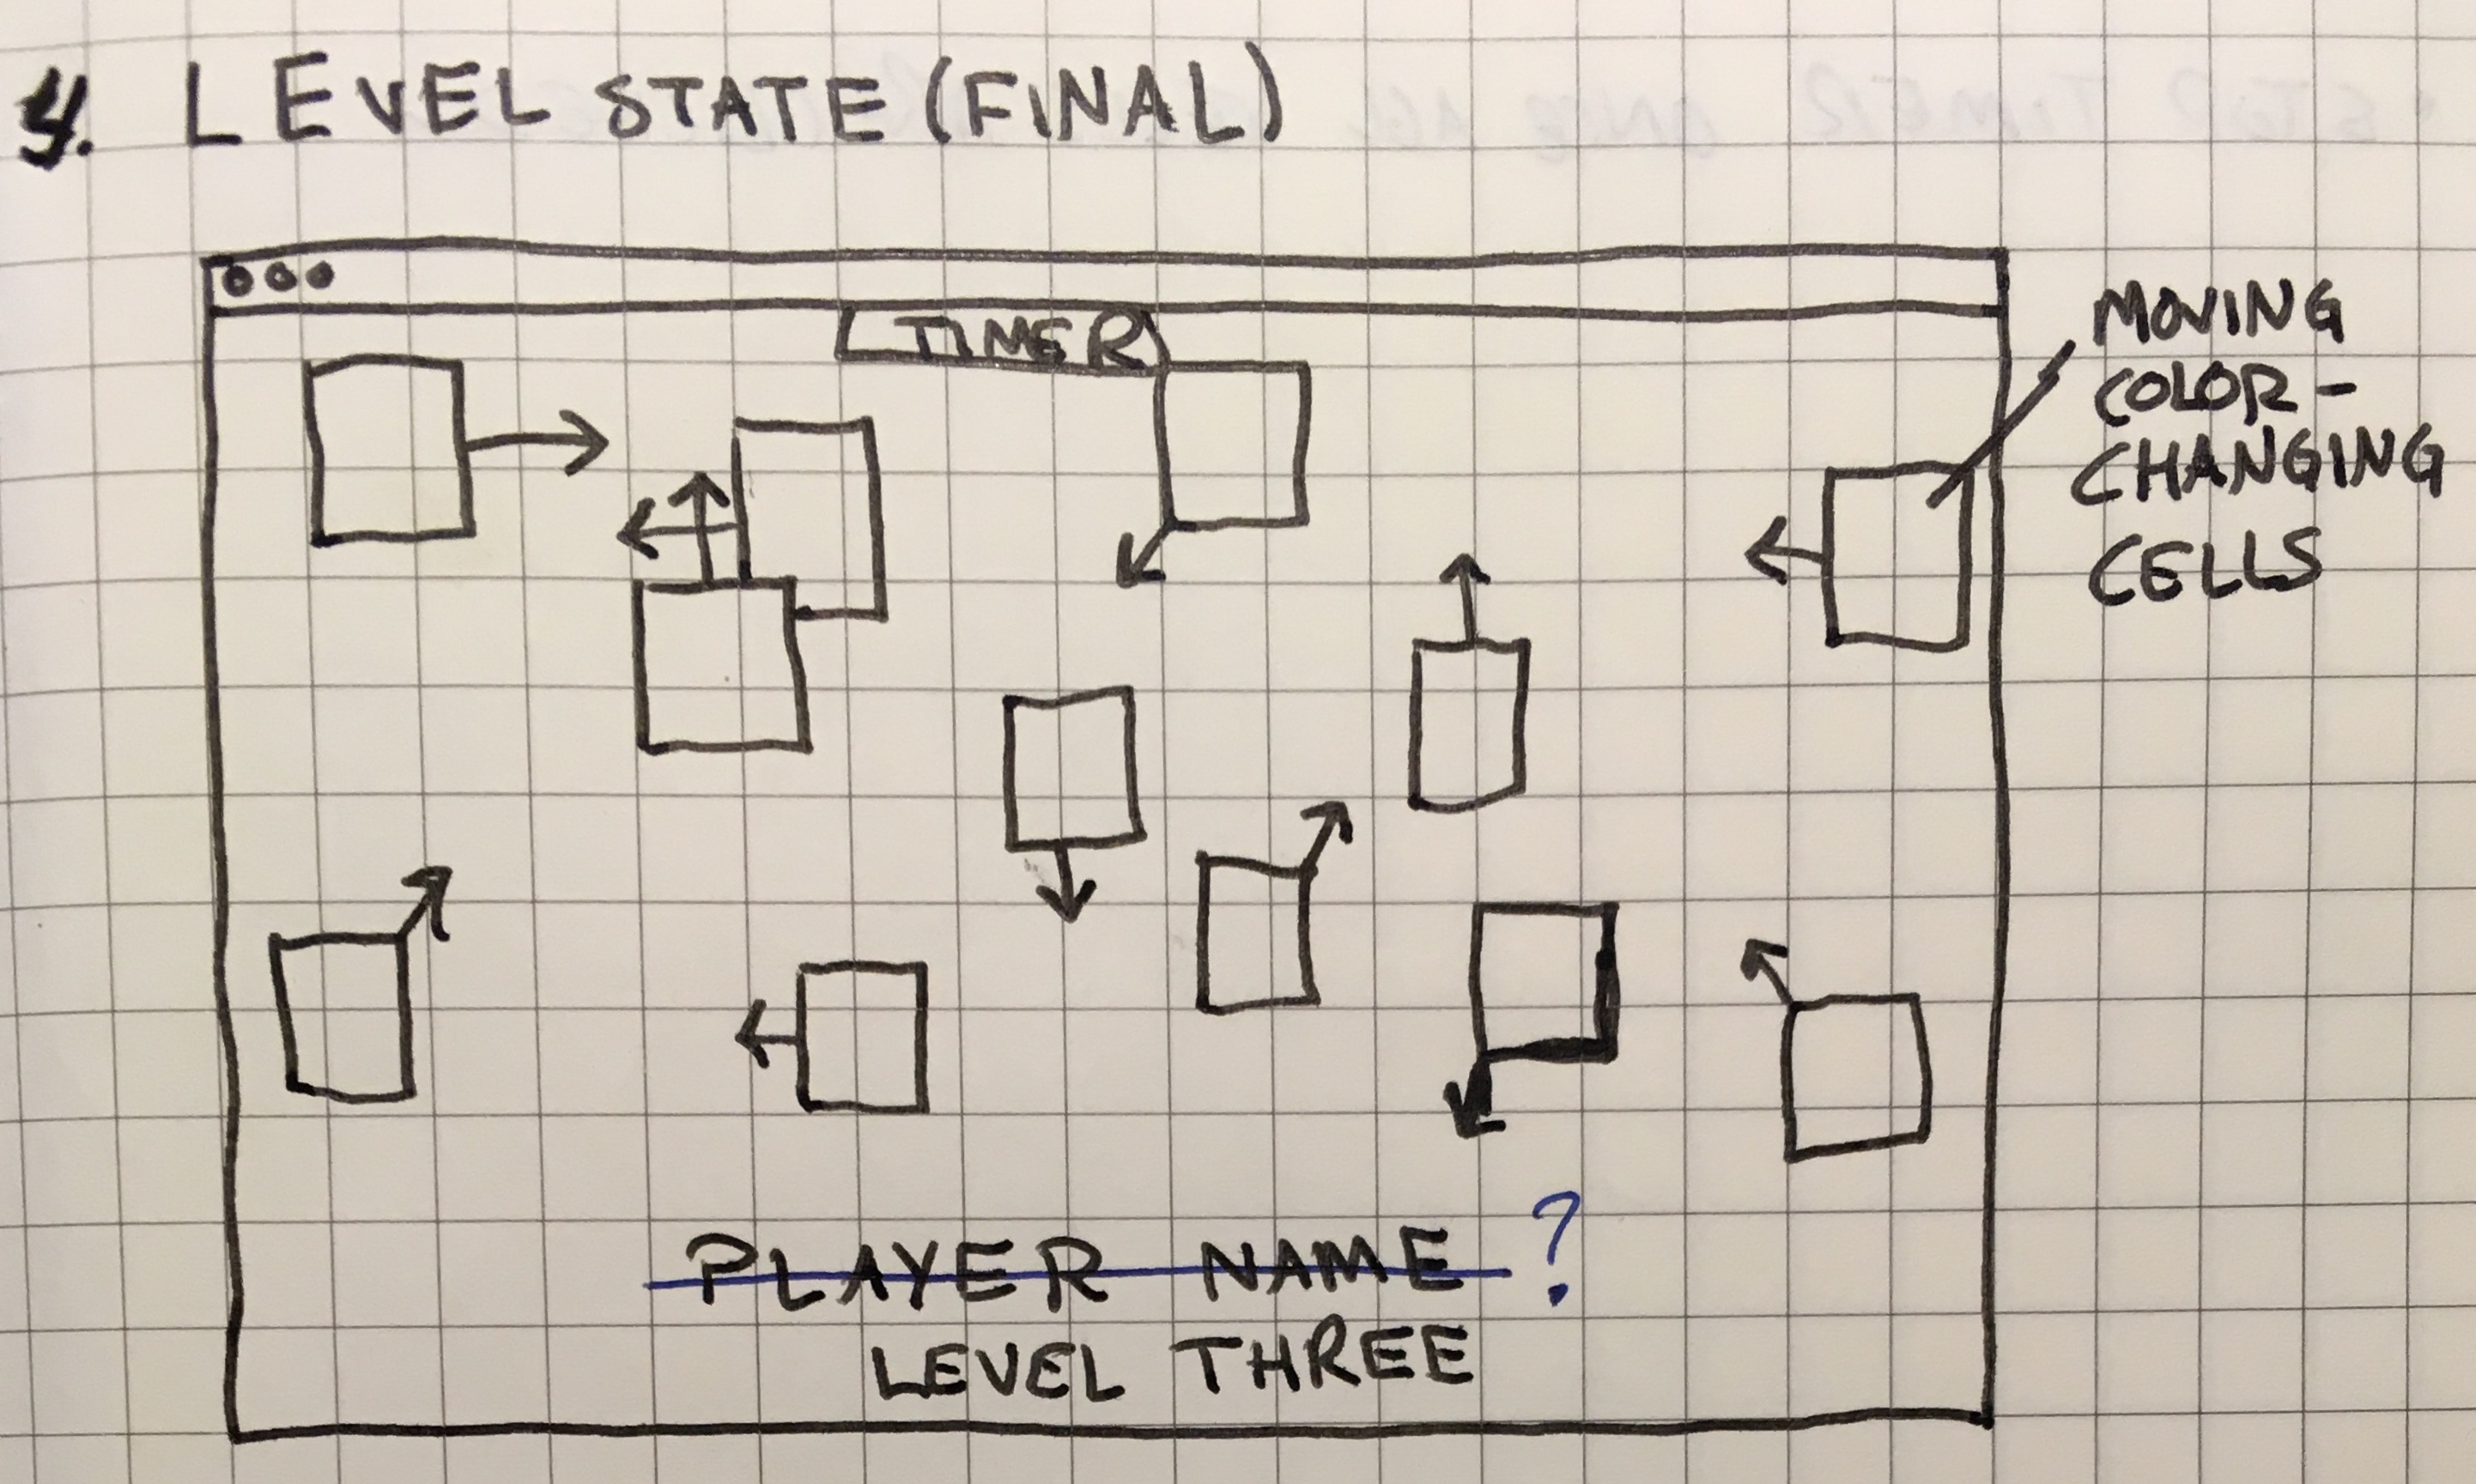 4. LEVEL STATE (FINAL)
TIMER
MOVING
COLOR-
CHANGING
CELLS
PLAYER NAME ?
LEVEL THREE